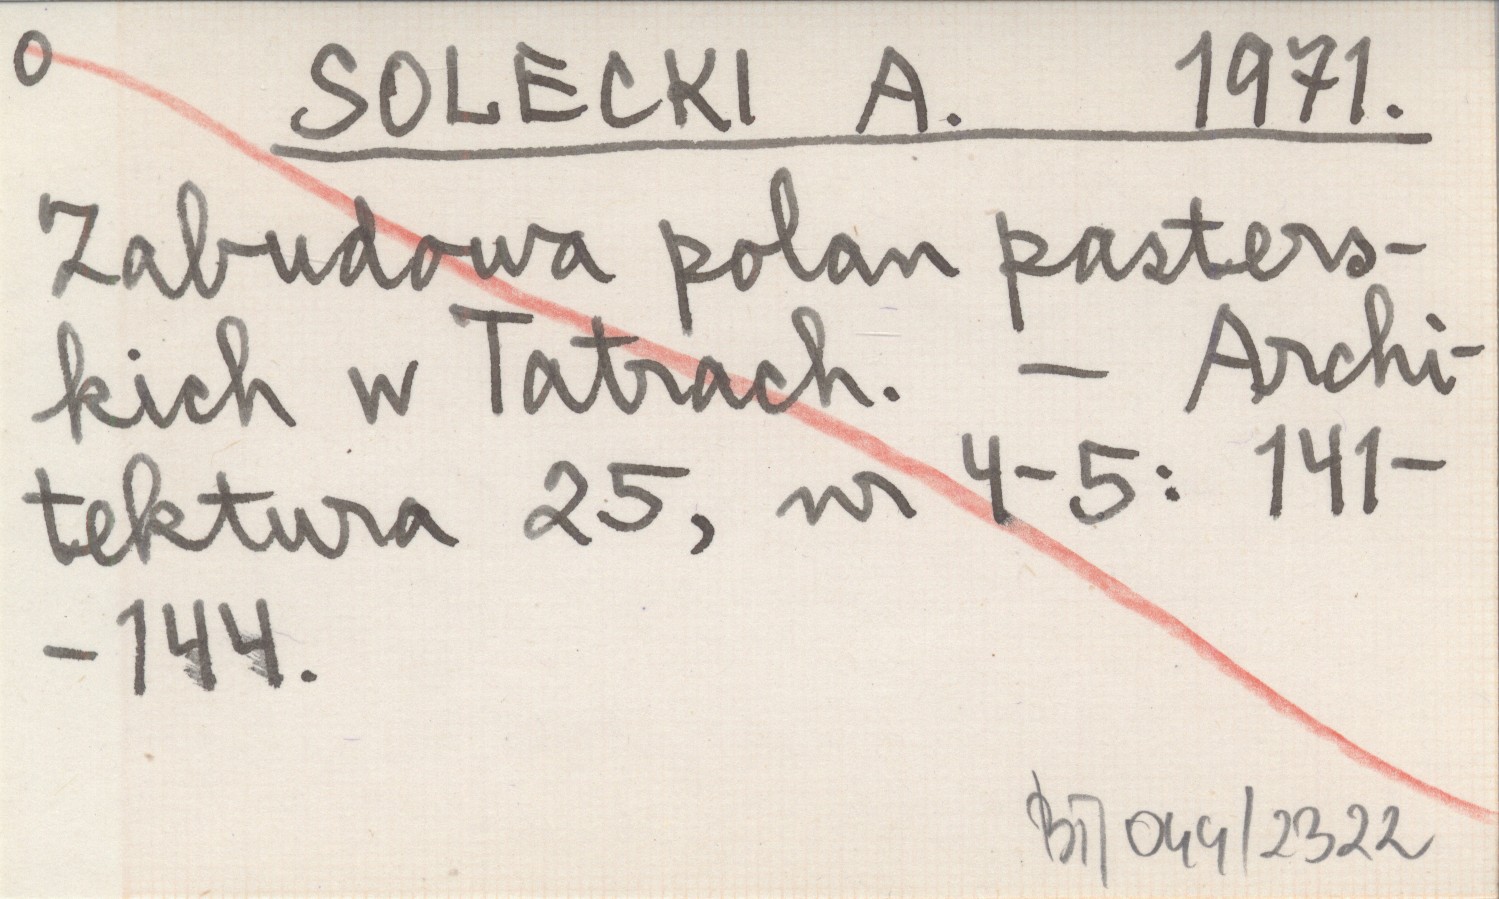 O SOLECKI A. 1971.
Zabudowa polan paters-
kich w Tatrach. — Archi-
tektura 25, nr 4-5: 141-
-144.
044/2322